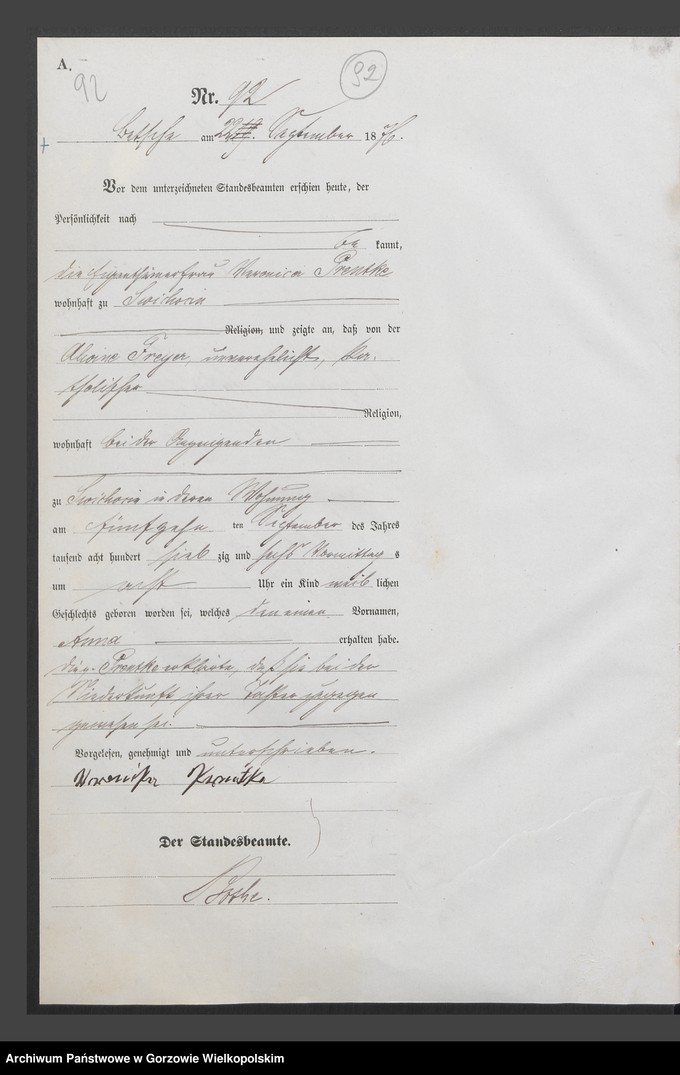 A.
92
92
Nr. 92
Betsche am September 1876.
Vor dem unterzeichneten Standesbeamten erschien heute, der
Persönlichkeit nach
be kannt,
die Eigenthümerfrau Veronica Prentke
wohnhaft zu
Religion, und zeigte an, daß von der
Freyer, unverehelicht, ka-
tholischer
Religion,
wohnhaft bei der
zu in deren Wohnung
am fünfzehn ten September des Jahres
tausend acht hundert sieb zig und sechs Vormittag s
um acht Uhr ein Kind weib lichen
Geschlechts geboren worden sei, welches den einen Vornamen,
Anna erhalten habe.
Die Prentke erklärte, daß sie bei der
Niederkunft ihrer Tochter zugegen
gewesen sei.
Vorgelesen, genehmigt und unterschrieben.
Veronika Prentke
Der Standesbeamte.
Archiwum Państwowe w Gorzowie Wielkopolskim